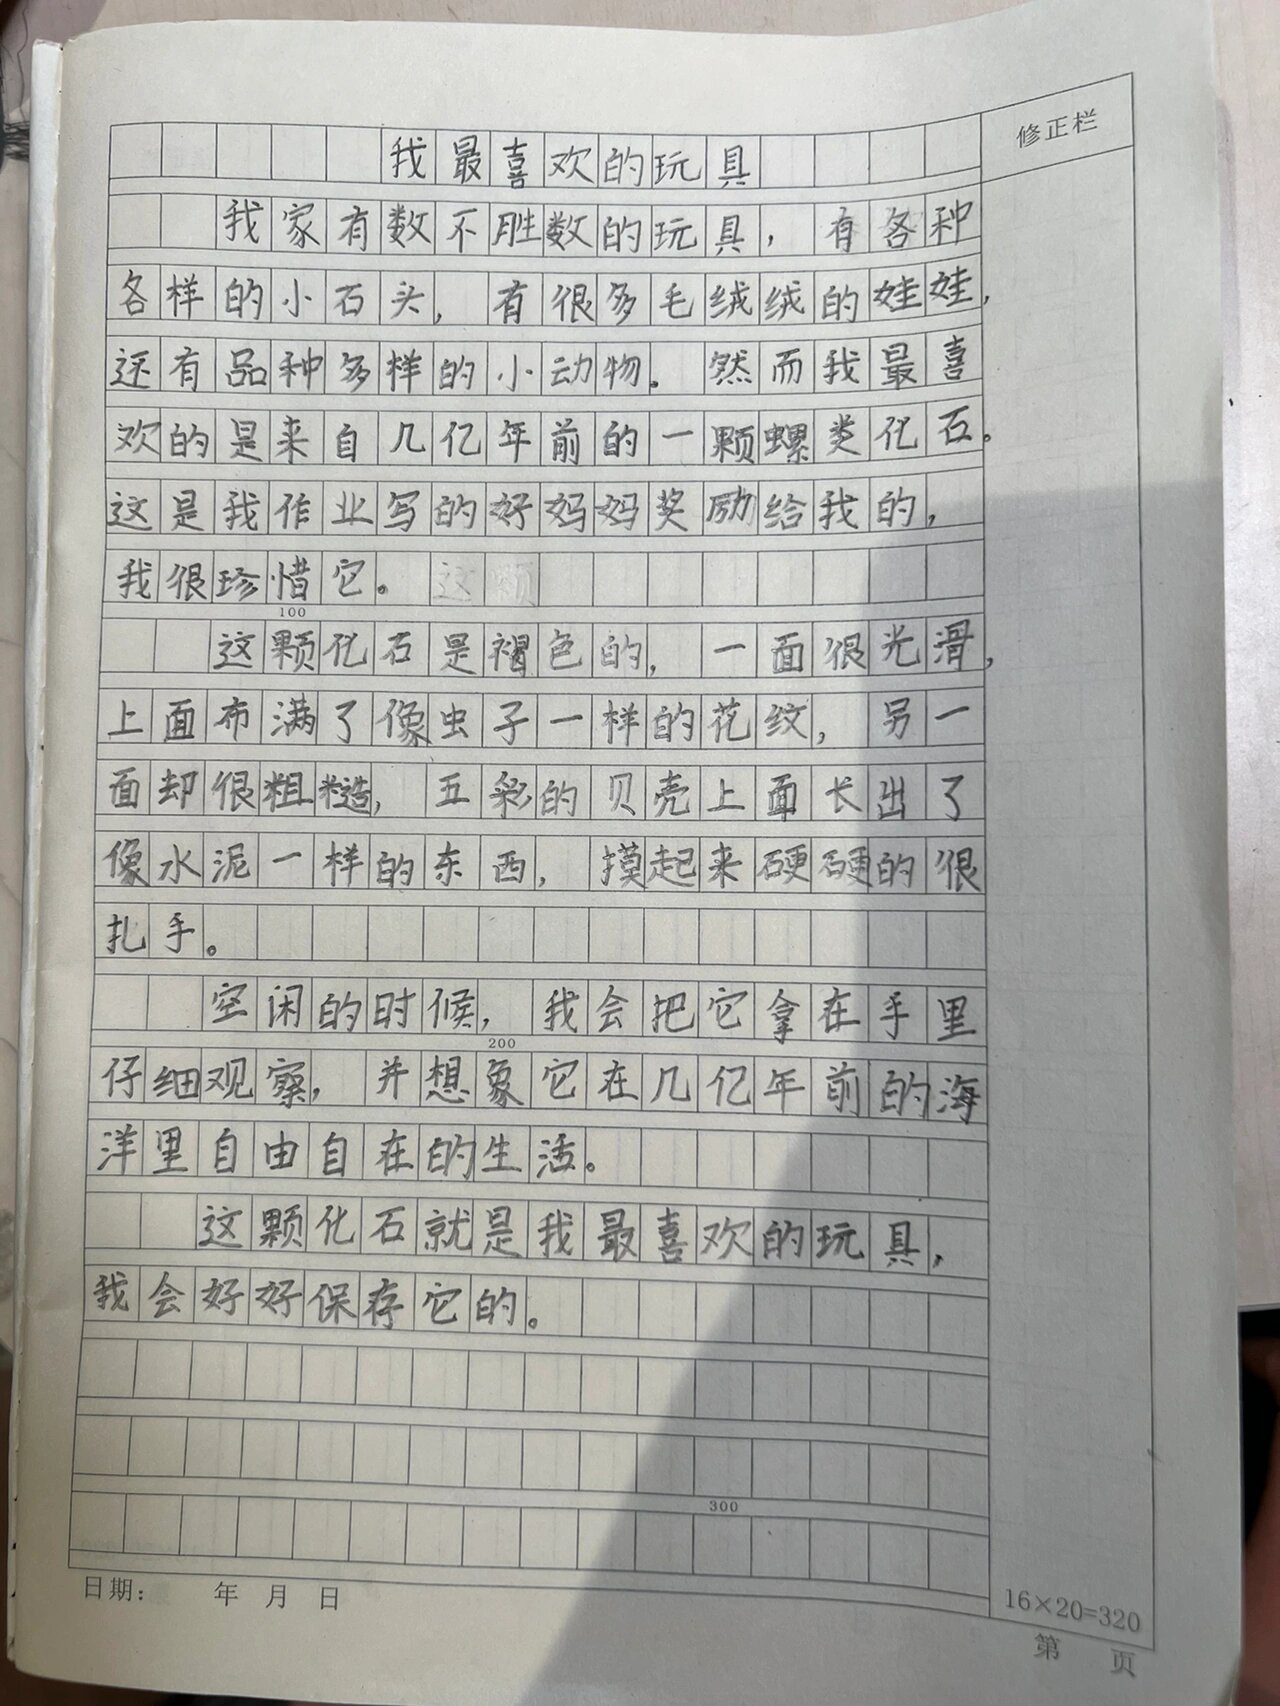 修正栏
我最喜欢的玩具
我家有数不胜数的玩具，有各种
各样的小石头，有很多毛绒绒的娃娃，
还有品种多样的小动物。然而我最喜
欢的是来自几亿年前的一颗螺类化石。
这是我作业写的好妈妈奖励给我的，
我很珍惜它。
100
这颗化石是褐色的，一面很光滑，
上面布满了像虫子一样的花纹，另一
面却很粗糙，五彩的贝壳上面长出了
像水泥一样的东西，摸起来硬硬的很
扎手。
空闲的时候，我会把它拿在手里
200
仔细观察，并想象它在几亿年前的海
洋里自由自在的生活。
这颗化石就是我最喜欢的玩具，
我会好好保存它的。
300
日期： 年 月 日
16×20=320
第 页